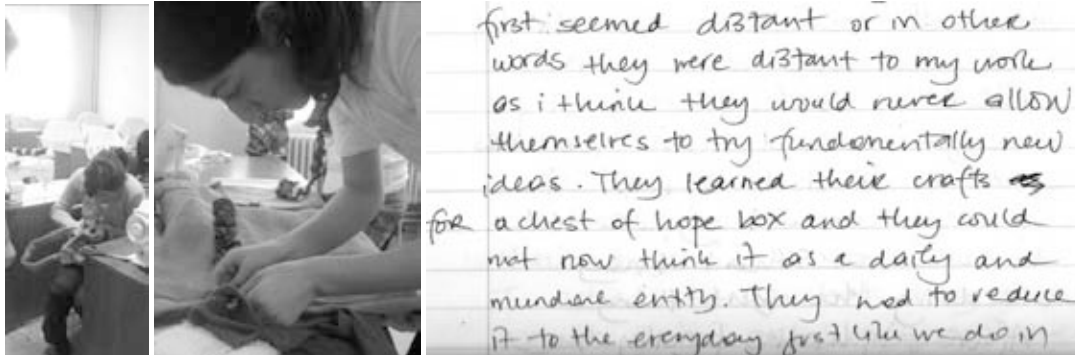 first seemed distant or in other
words they were distant to my work
as i think they would never allow
themselves to try fundamentally new
ideas. They learned their crafts
for a chest of hope box and they could
not now think it as a daily and
mundane entity. They need to reduce
it to the everyday just like we do in